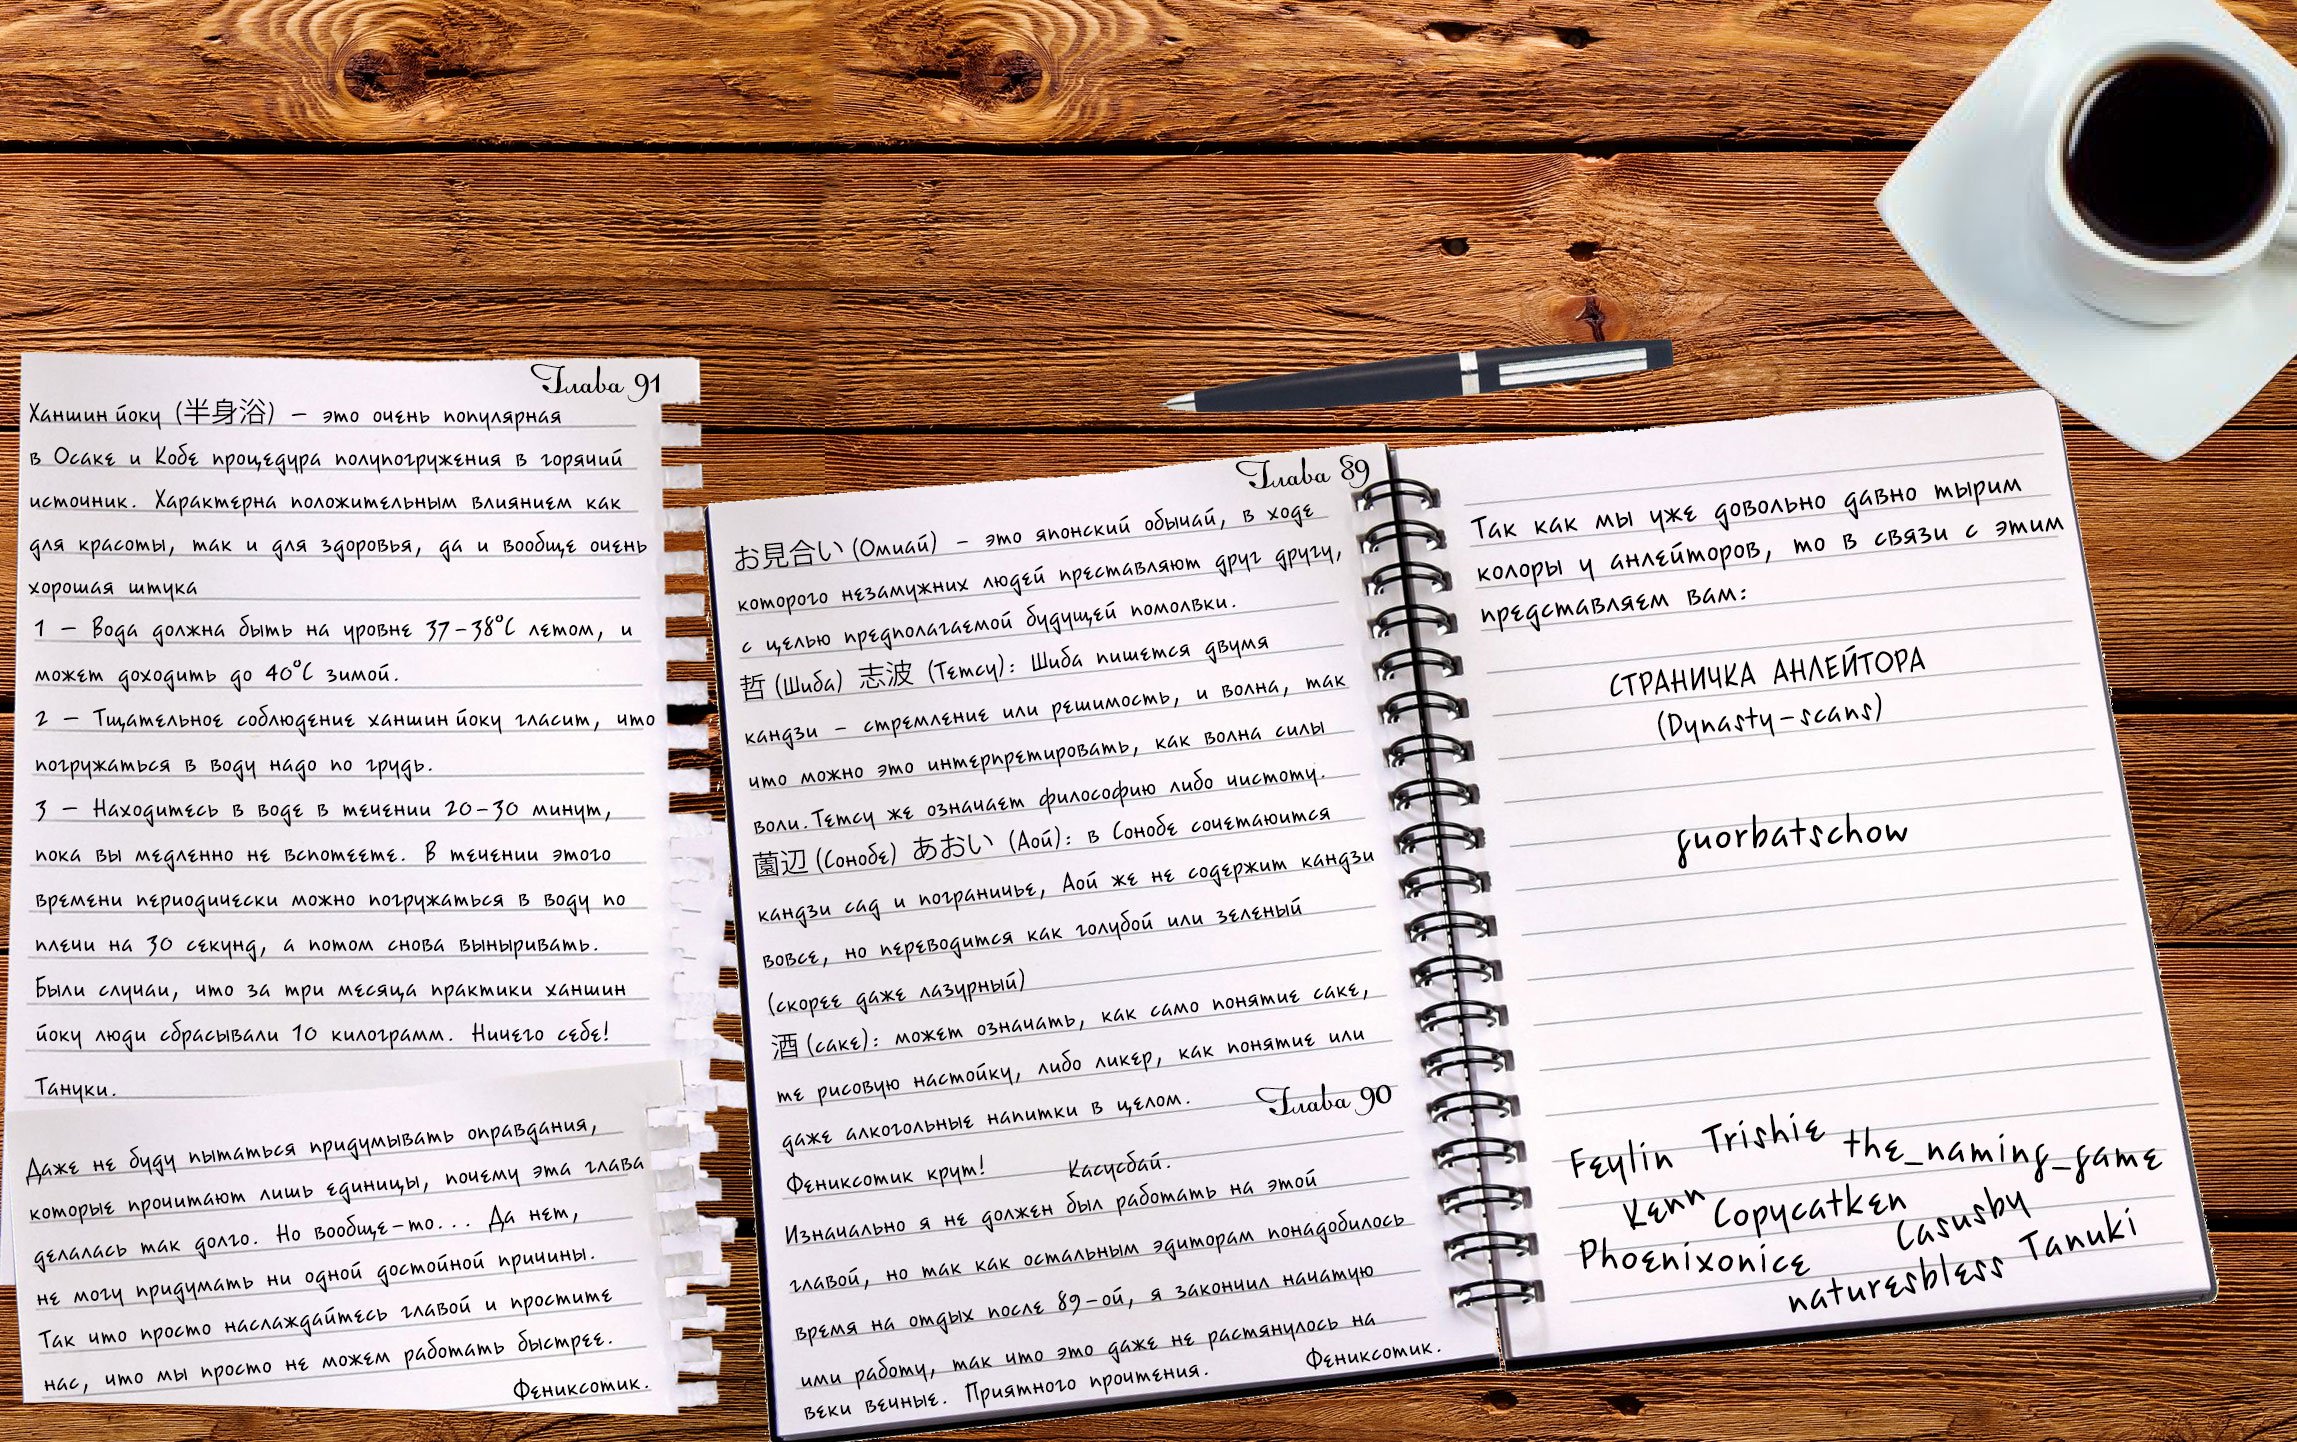 Глава 91
Ханшин йоку (半身浴) – это очень популярная
в Осаке и Кобе процедура полупогружения в горячий
источник. Характерна положительным влиянием как
для красоты, так и для здоровья, да и вообще очень
хорошая штука
1 – Вода должна быть на уровне 37-38°C летом, и
может доходить до 40°C зимой.
2 – Тщательное соблюдение ханшин йоку гласит, что
погружаться в воду надо по грудь.
3 – Находитесь в воде в течении 20-30 минут,
пока вы медленно не вспотеете. В течении этого
времени периодически можно погружаться в воду по
плечи на 30 секунд, а потом снова выныривать.
Были случаи, что за три месяца практики ханшин
йоку люди сбрасывали 10 килограмм. Ничего себе!
Тануки.
Даже не буду пытаться придумывать оправдания,
которые прочитают лишь единицы, почему эта глава
делалась так долго. Но вообще-то... Да нет,
не могу придумать ни одной достойной причины.
Так что просто наслаждайтесь главой и простите
нас, что мы просто не можем работать быстрее.
Фениксотик.
Глава 89
お見合い (Омиай) – это японский обычай, в ходе
которого незамужних людей преставляют друг другу,
с целью предполагаемой будущей помолвки.
哲 (Шиба) 志波 (Тетсу): Шиба пишется двумя
кандзи – стремление или решимость, и волна, так
что можно это интерпретировать, как волна силы
воли. Тетсу же означает философию либо чистоту.
薗辺 (Сонобе) あおい (Аой): в Сонобе сочетаюится
кандзи сад и пограничье, Аой же не содержит кандзи
вовсе, но переводится как голубой или зеленый
(скорее даже лазурный)
酒 (саке): может означать, как само понятие саке,
те рисовую настойку, либо ликер, как понятие или
даже алкогольные напитки в целом.
Глава 90
Фениксотик крут! Касусбай.
Изначально я не должен был работать на этой
главой, но так как остальным эдиторам понадобилось
время на отдых после 89-ой, я закончил начатую
ими работу, так что это даже не растянулось на
веки вечные. Приятного прочтения.
Фениксотик.
Так как мы уже довольно давно тырим
колоры у анлейторов, то в связи с этим
представляем вам:
СТРАНИЧКА АНЛЕЙТОРА
(Dynasty-scans)
guorbatschow
Feylin Trishie the_naming_game
Kenn Copycatken
Phoenixonice Casusby
naturesbless Tanuki